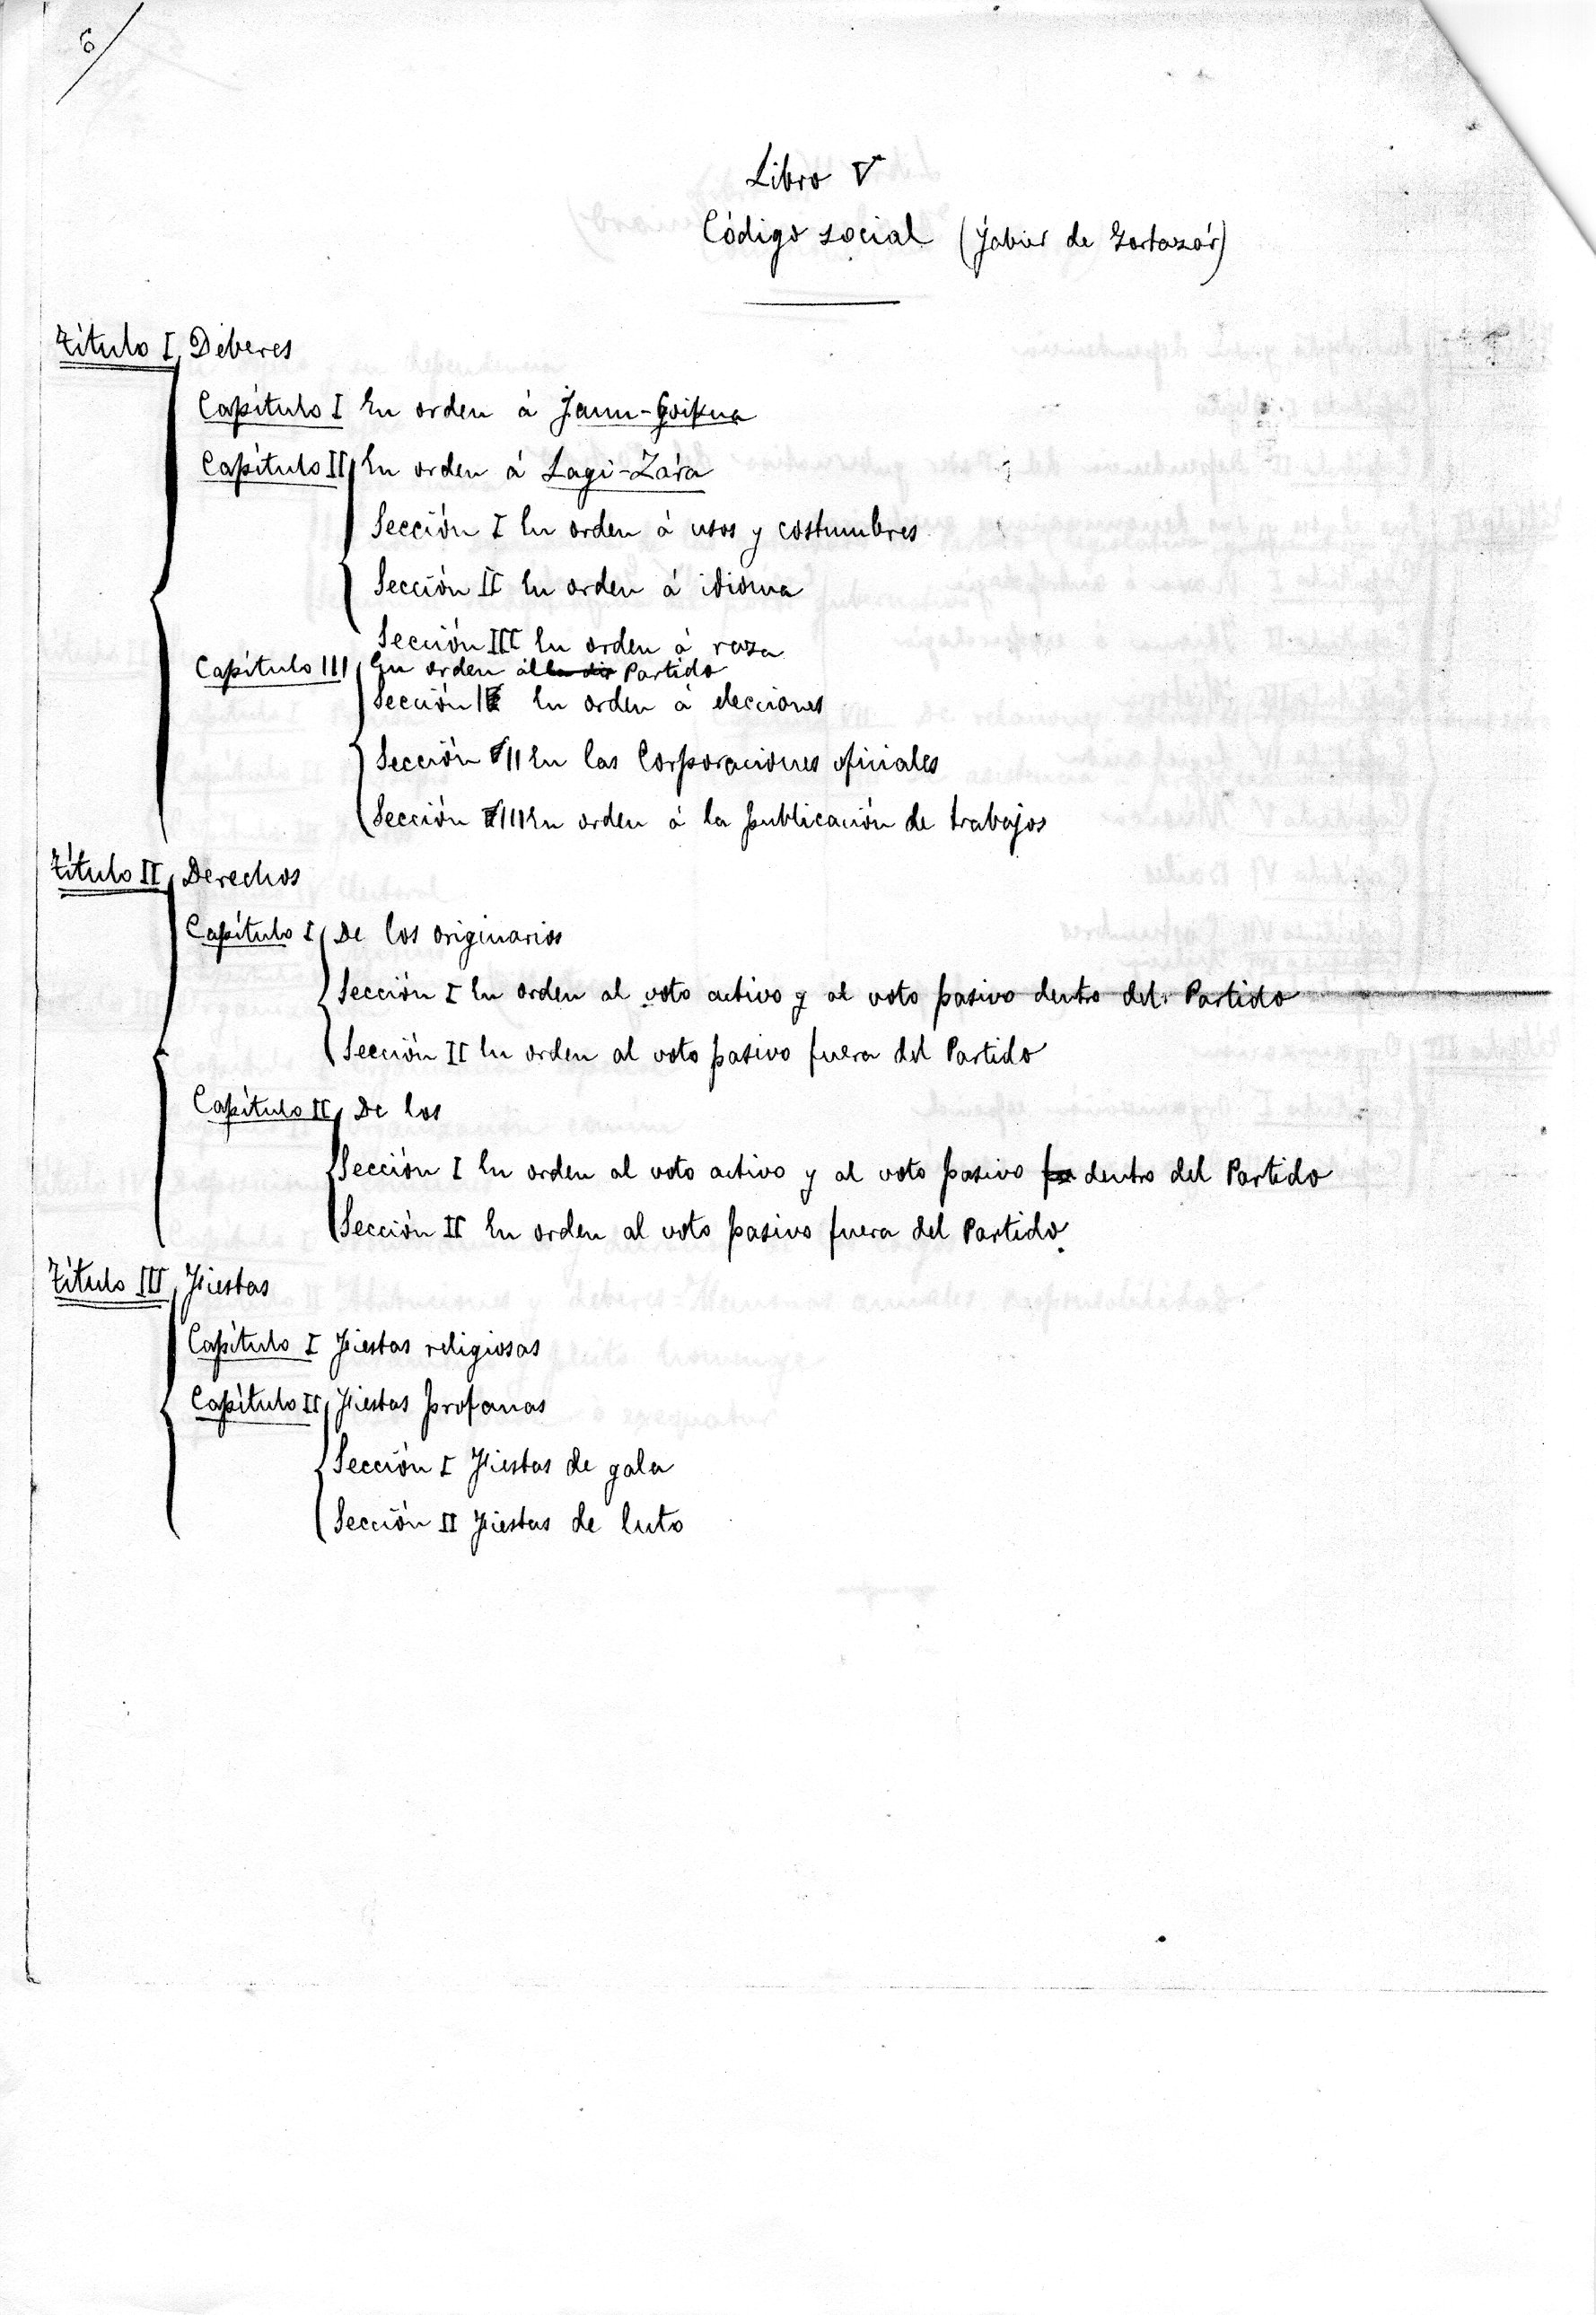 6
Libro V
Código social (Jabier de Gortazár)
Título I Deberes
Capítulo I En orden á Jaun-Goikua
Capítulo II En orden á Lagi-Zára
Sección I En orden á usos y costumbres
Sección II En orden á idioma
Sección III En orden á raza
Capítulo III En orden ál Partido
Sección I En orden á elecciones
Sección II En las Corporaciones oficiales
Sección III En orden á la publicación de trabajos
Título II Derechos
Capítulo I De los originarios
Sección I En orden al voto activo y al voto pasivo dentro del Partido
Sección II En orden al voto pasivo fuera del Partido
Capítulo II De los
Sección I En orden al voto activo y al voto pasivo dentro del Partido
Sección II En orden al voto pasivo fuera del Partido.
Título III Fiestas
Capítulo I Fiestas religiosas
Capítulo II Fiestas profanas
Sección I Fiestas de gala
Sección II Fiestas de luto